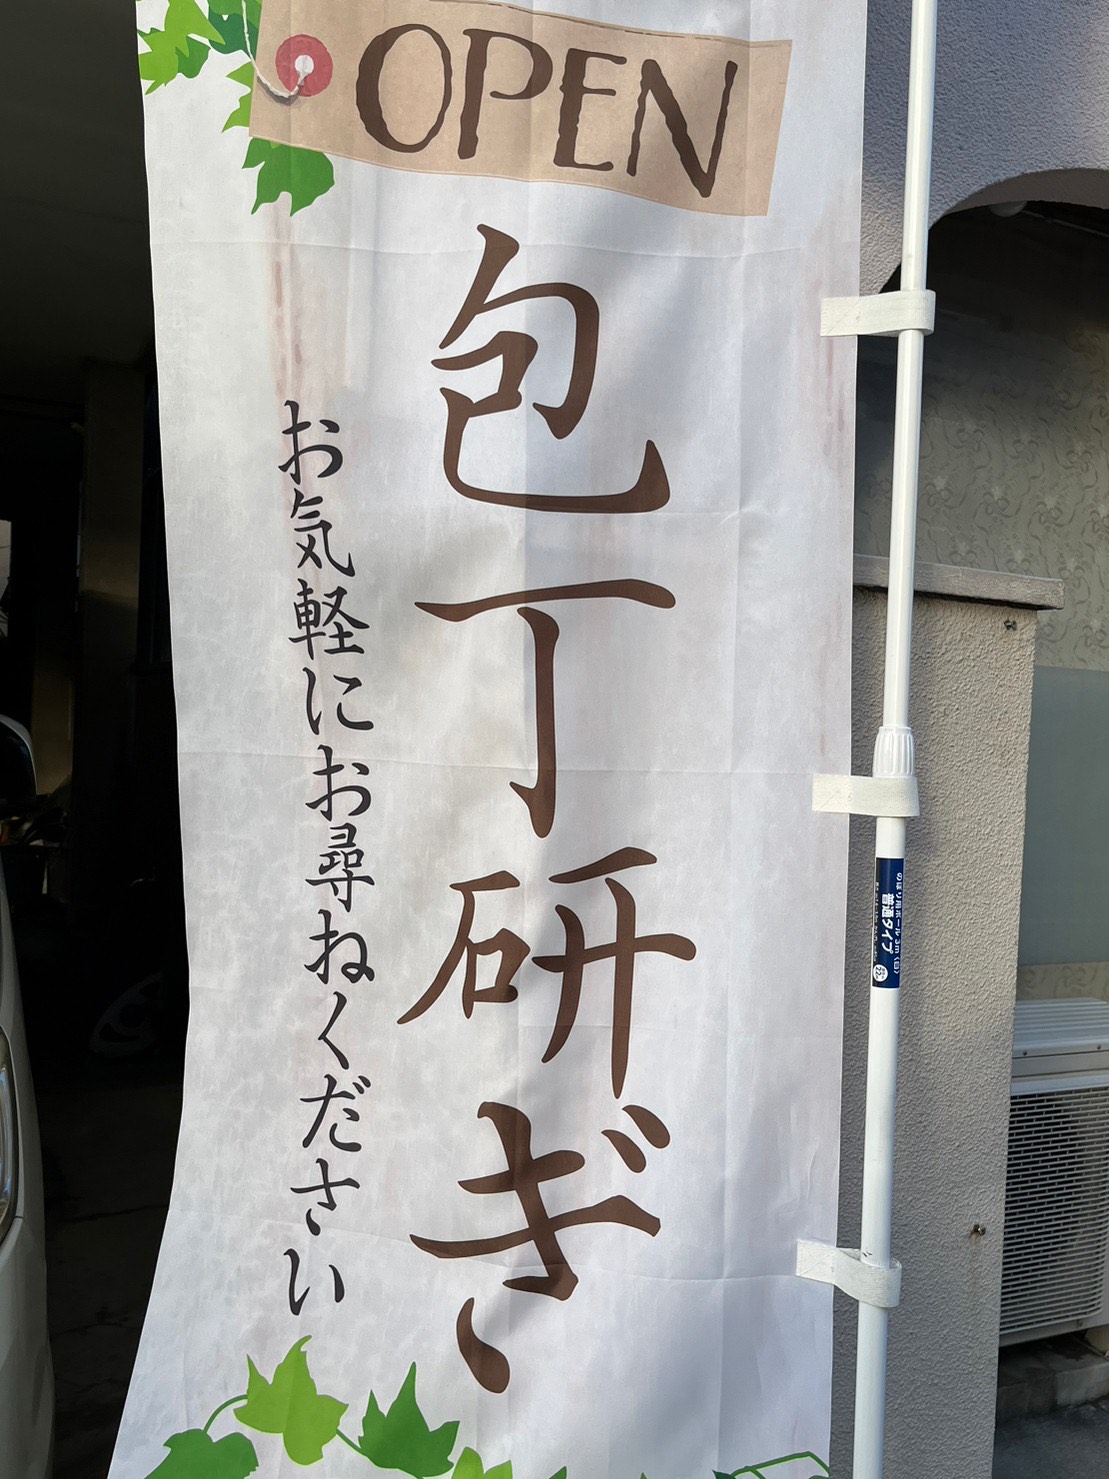 OPEN
包丁研ぎ
お気軽にお尋ねください
のぼり用ポール3m(白)
普通タイプ